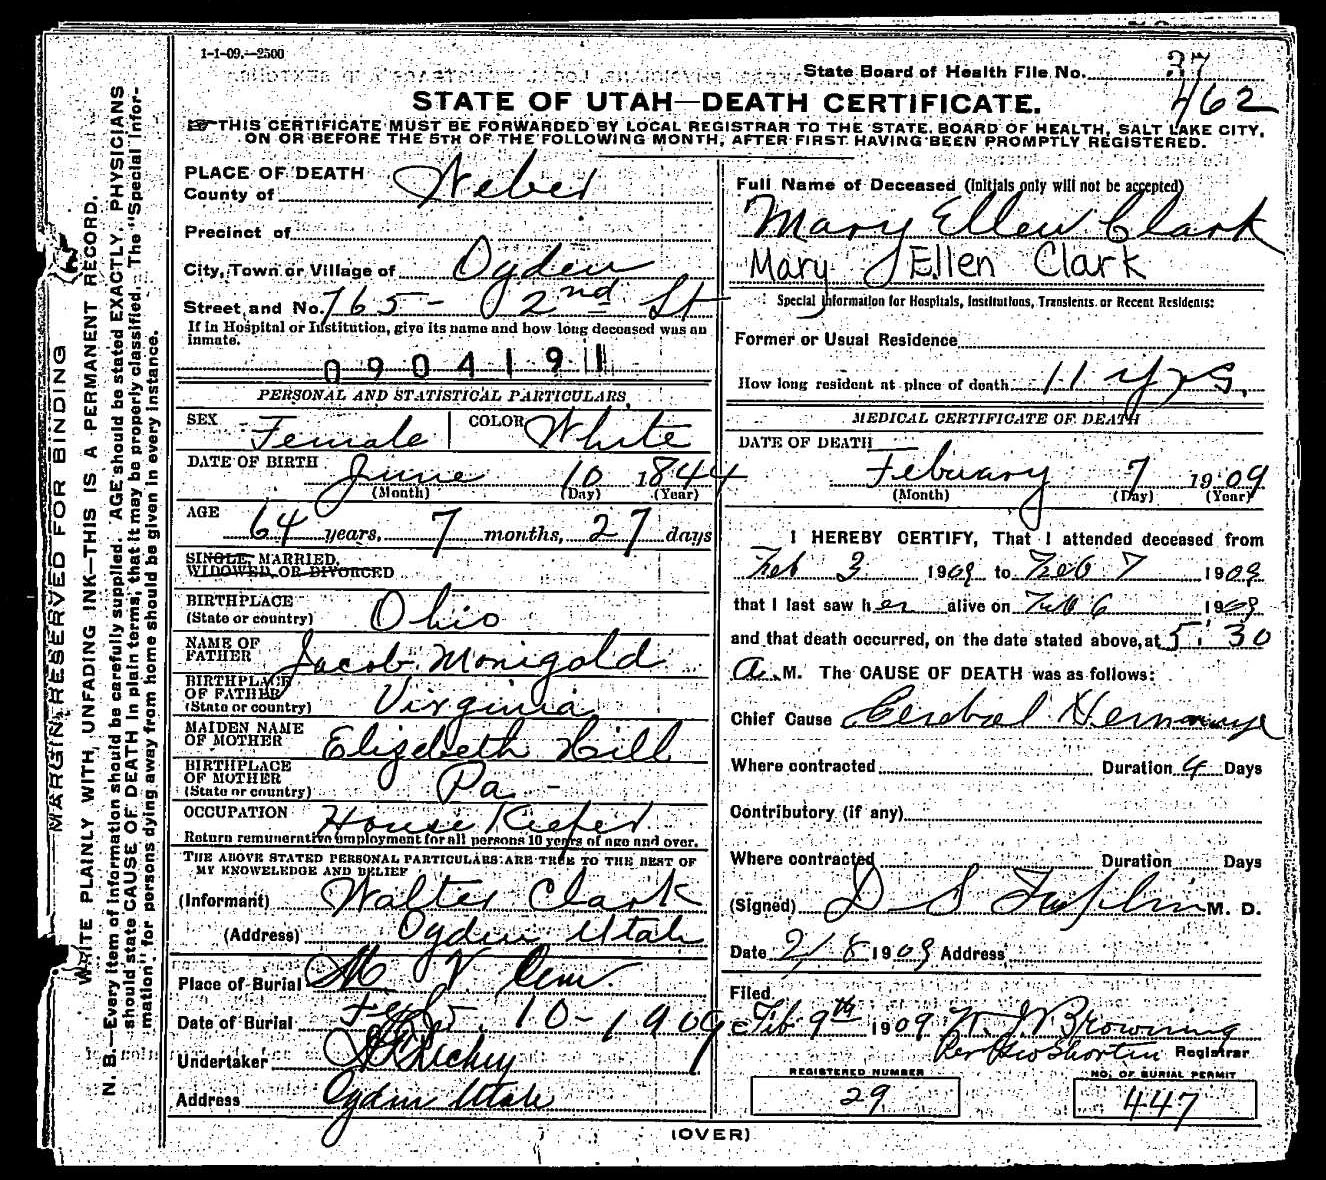 1-1-09.—2500
State Board of Health File No. 37
462
STATE OF UTAH—DEATH CERTIFICATE.
THIS CERTIFICATE MUST BE FORWARDED BY LOCAL REGISTRAR TO THE STATE BOARD OF HEALTH, SALT LAKE CITY,
ON OR BEFORE THE 5TH OF THE FOLLOWING MONTH, AFTER FIRST HAVING BEEN PROMPTLY REGISTERED.
MARGIN RESERVED FOR BINDING
WRITE PLAINLY WITH UNFADING INK—THIS IS A PERMANENT RECORD.
N. B.—Every item of information should be carefully supplied. AGE should be stated EXACTLY. PHYSICIANS
should state CAUSE OF DEATH in plain terms, that it may be properly classified. The "Special Infor-
mation" for persons dying away from home should be given in every instance.
PLACE OF DEATH
County of Weber
Precinct of
City, Town or Village of Ogden
Street and No. 765- 2nd St
If in Hospital or Institution, give its name and how long deceased was an
inmate.
0904191
PERSONAL AND STATISTICAL PARTICULARS
SEX Female COLOR White
DATE OF BIRTH June 10 1844
(Month) (Day) (Year)
AGE
64 years, 7 months, 27 days
SINGLE, MARRIED,
WIDOWED OR DIVORCED
BIRTHPLACE
(State or country) Ohio
NAME OF
FATHER Jacob Monigold
BIRTHPLACE
OF FATHER
(State or country) Virginia
MAIDEN NAME
OF MOTHER Elizebeth Hill
BIRTHPLACE
OF MOTHER
(State or country) Pa -
OCCUPATION House Keeper
Return remunerative employment for all persons 10 years of age and over.
THE ABOVE STATED PERSONAL PARTICULARS ARE TRUE TO THE BEST OF
MY KNOWELEDGE AND BELIEF
(Informant) Walter Clark
(Address) Ogden Utah
Place of Burial M. V. Cem.
Date of Burial Feb. 10-1909
Undertaker Richey
Address Ogden Utah
Full Name of Deceased (Initials only will not be accepted)
Mary Ellen Clark
Mary Ellen Clark
Special Information for Hospitals, Institutions, Transients or Recent Residents:
Former or Usual Residence
How long resident at place of death 11 yrs.
MEDICAL CERTIFICATE OF DEATH
DATE OF DEATH
Febuary 7 1909
(Month) (Day) (Year)
I HEREBY CERTIFY, That I attended deceased from
Feb 3 1909 to Feb 7 1909
that I last saw her alive on Feb 6 1909
and that death occurred, on the date stated above, at 5:30
a. M. The CAUSE OF DEATH was as follows:
Chief Cause Cerebral
Where contracted Duration 4 Days
Contributory (if any)
Where contracted Duration Days
(Signed) D S M. D.
Date 2/8 1909 Address
Filed
Feb 9th 1909 W. J. Browning
Per Geo Shorten Registrar
REGISTERED NUMBER
29
NO. OF BURIAL PERMIT
447
(OVER)